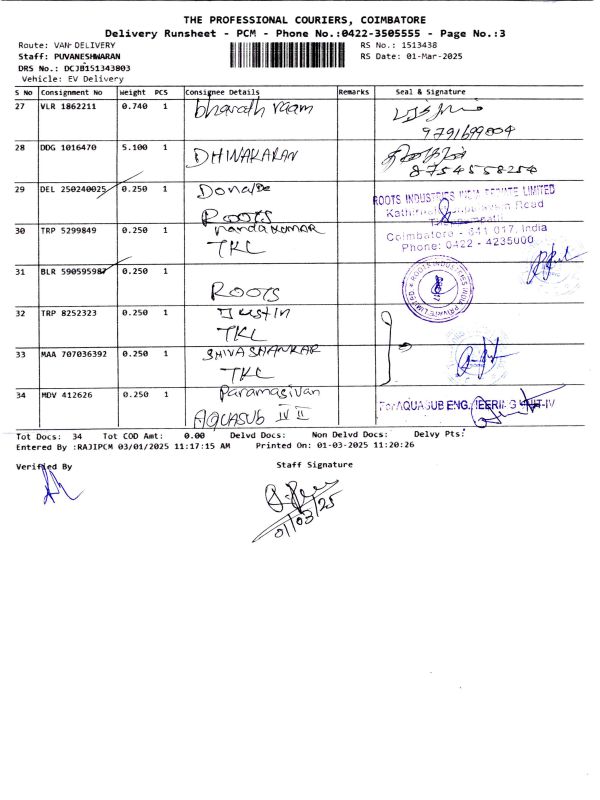 THE PROFESSIONAL COURIERS, COIMBATORE
Delivery Runsheet - PCM - Phone No.:0422-3505555 - Page No.:3
Route: VAN DELIVERY RS No.: 1513438
Staff: PUVANESHWARAN RS Date: 01-Mar-2025
DRS No.: DCJB151343803
Vehicle: EV Delivery
S No Consignment No Weight PCS Consignee Details Remarks Seal & Signature
27 VLR 1862211 0.740 1 bharath raam
9791699004
28 DDG 1016470 5.100 1 DHINAKARAN
8754558254
29 DEL 250240025 0.250 1 Donald
ROOTS
ROOTS INDUSTRIES INDIA PRIVATE LIMITED
Road
30 TRP 5299849 0.250 1 nandakumar
TKL
Coimbatore - 641 017, India
Phone: 0422 - 4235000
31 BLR 590595987 0.250 1
ROOTS
ROOTS INDUSTRIES INDIA PRIVATE LIMITED
32 TRP 8252323 0.250 1 Justin
TKL
33 MAA 707036392 0.250 1 SHIVA SHANKAR
TKL
34 MDV 412626 0.250 1 Paramasivan
AQUASUB IV II
For AQUASUB ENGINEERING UNIT-IV
Tot Docs: 34 Tot COD Amt: 0.00 Delvd Docs: Non Delvd Docs: Delvy Pts:
Entered By :RAJIPCM 03/01/2025 11:17:15 AM Printed On: 01-03-2025 11:20:26
Verified By Staff Signature
01/03/25